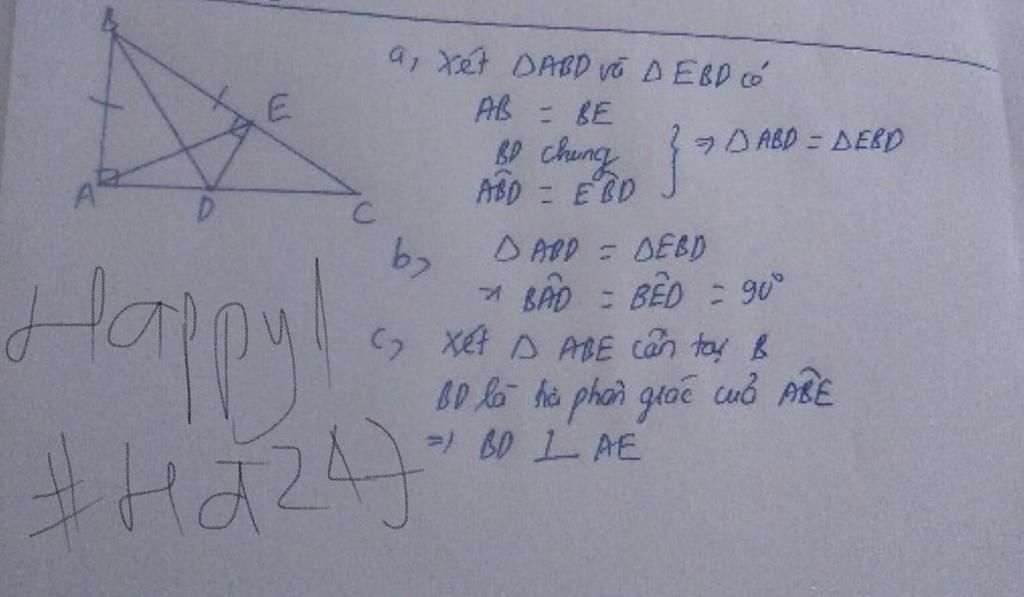 B
E
A
D
C
a, Xét ΔABD và ΔEBD có
AB = BE
BD chung
AB̂D = EB̂D
} ⇒ ΔABD = ΔEBD
b, ΔABD = ΔEBD
⇒ BÂD = BÊD = 90°
c, Xét Δ ABE cân tại B
BD là tia phân giác của AB̂E
⇒ BD ⊥ AE
Happy!
#Ha24J